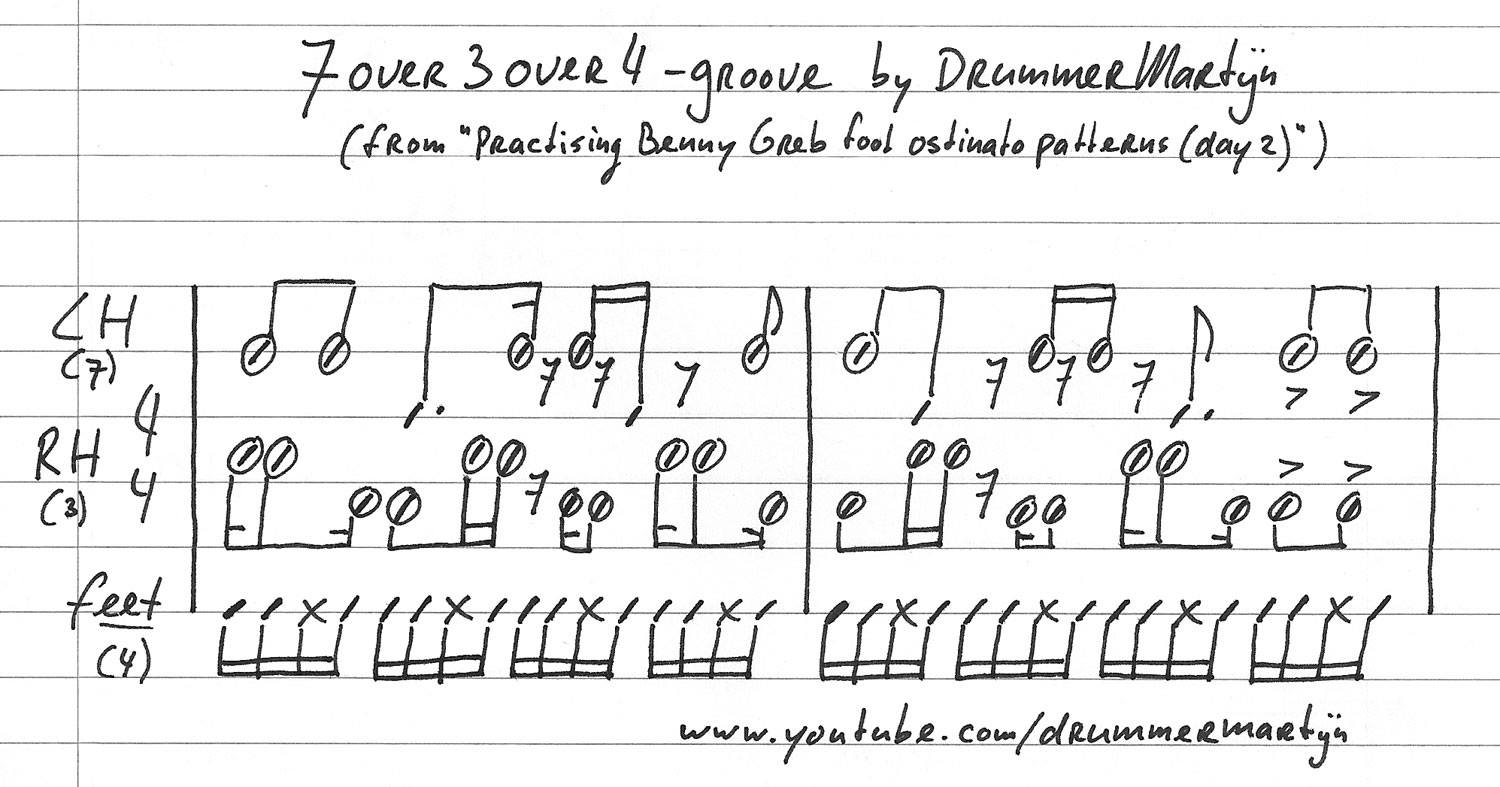 7 over 3 over 4 - groove by DrummerMartijn
(from "Practising Benny Greb foot ostinato patterns (day 2)")
LH
(7)
RH
(3)
4
4
feet
(4)
www.youtube.com/drummermartijn